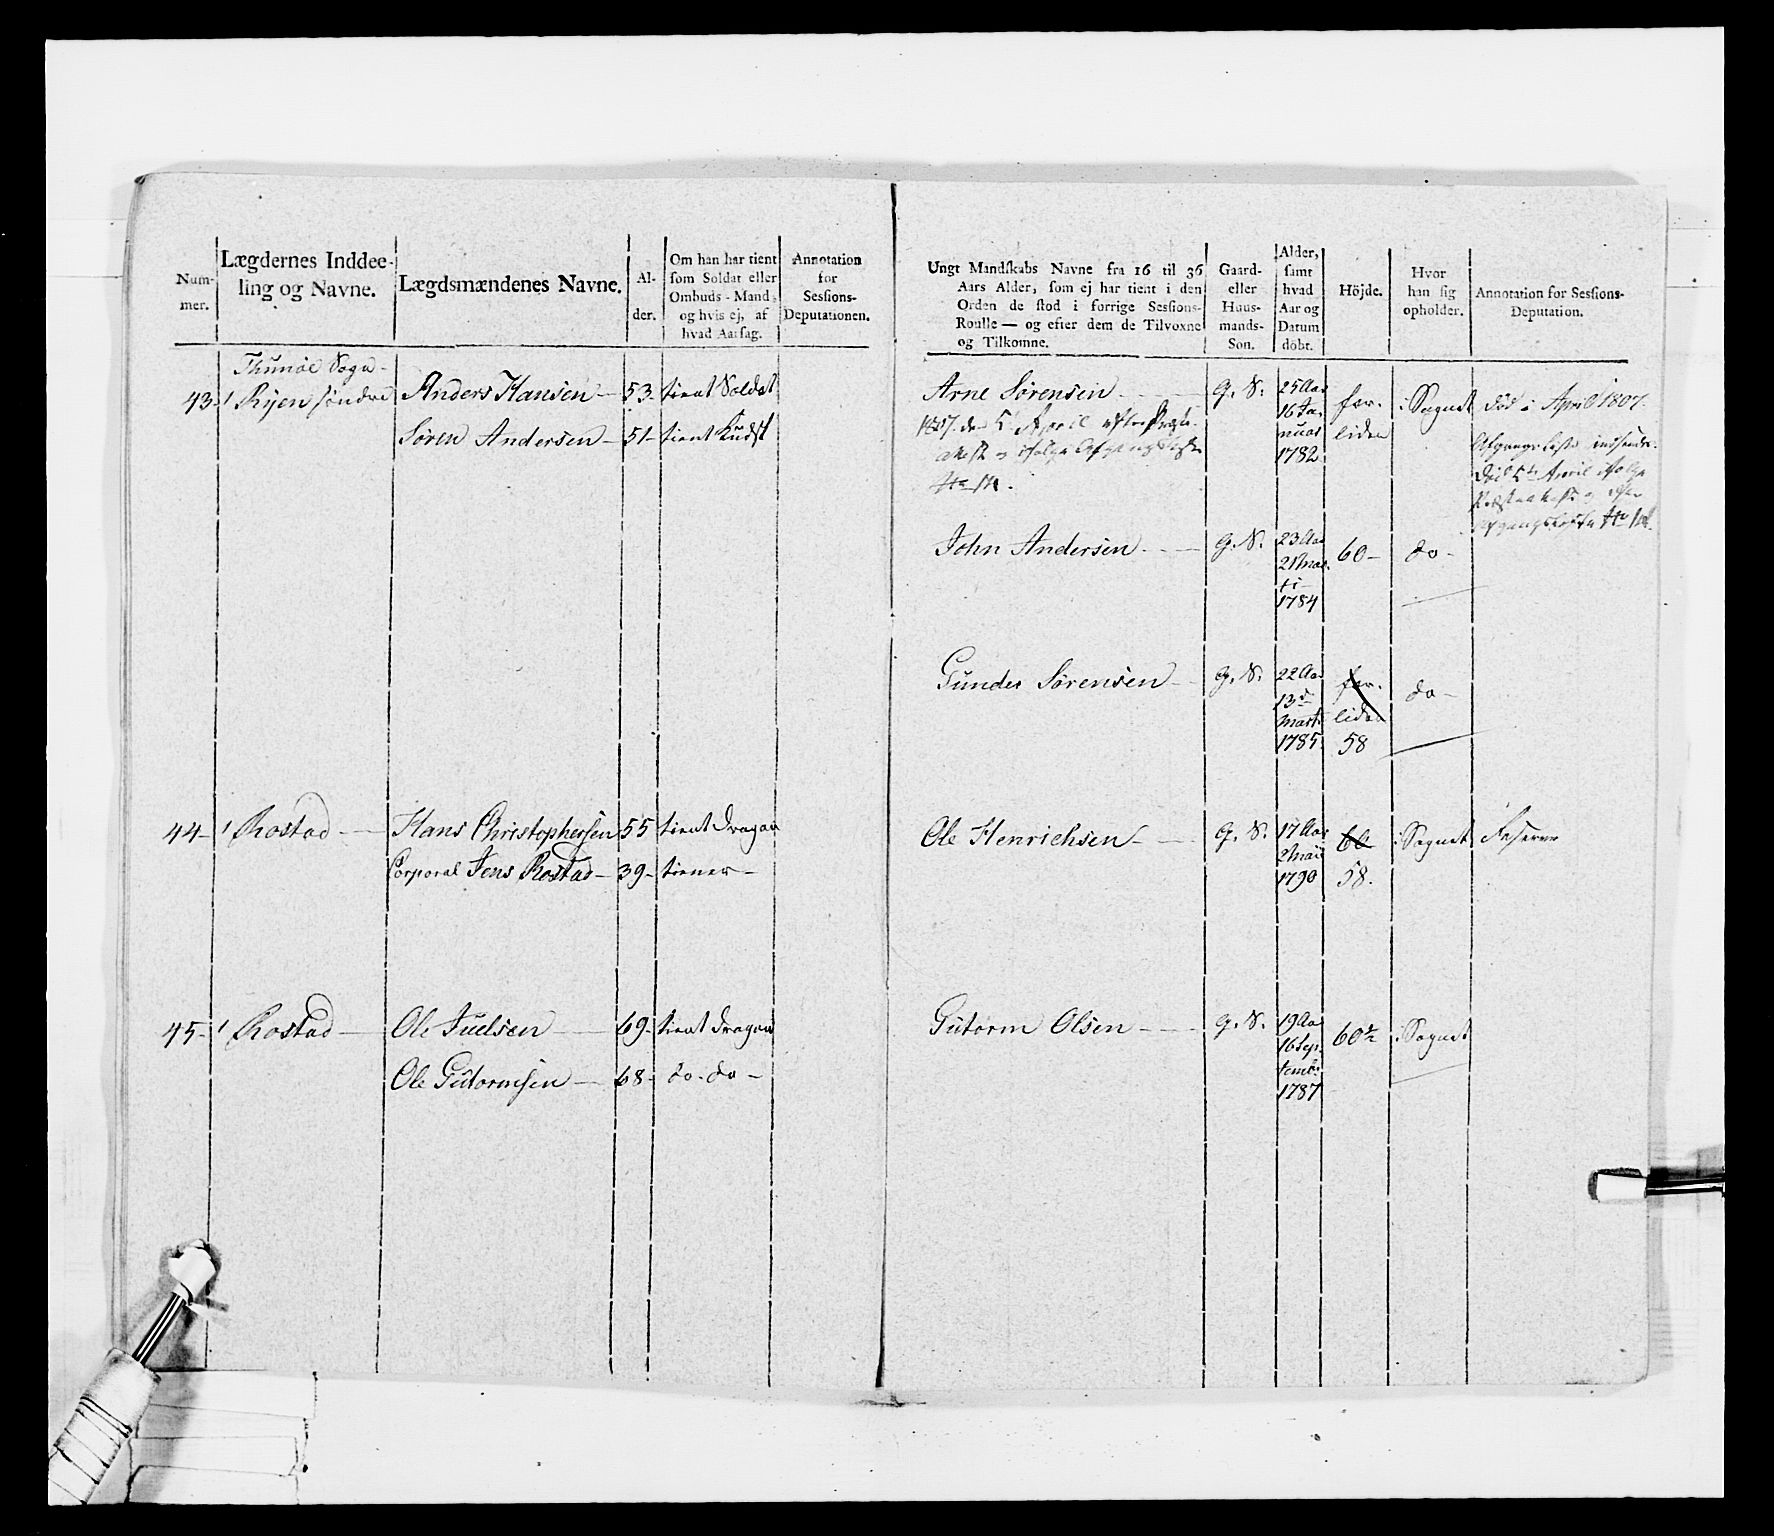 Num-
mer.
Lægdernes Inddee-
ling og Navne.
Lægdsmændenes Navne.
Al-
der.
Om han har tient
som Soldat eller
Ombuds-Mand,
og hvis ej, af
hvad Aarsag.
Annotation
for
Sessions-
Deputationen.
Thunøe Sogn-
43- 1 Ryen søndre Anders Hansen - 53- tient Soldat
Søren Andersen - 51- tient
44- 1 Rostad - Hans Christophersen 55 tient Dragon
Corporal Jens Rostad - 39- tiener -
45- 1 Rostad - Ole Juelsen - 69- tient Dragon
Ole Gutormsen - 68- do- do -
Ungt Mandskabs Navne fra 16 til 36
Aars Alder, som ej har tient i den
Orden de stod i forrige Sessions-
Roulle — og efter dem de Tilvoxne
og Tilkomne.
Gaard-
eller
Huus-
mands-
Son.
Alder,
samt
hvad
Aar og
Datum
döbt.
Höjde.
Hvor
han sig
opholder.
Annotation for Sessions-
Deputation.
Arne Sørensen - G. S. 25 Aar
16 Ja-
nuar
1782
for-
liden
i Sognet
død i April 1807.
1807. den 5 April efter Præste-
Afgangsliste
Død 5te April
Afgangsliste
John Andersen - G. S. 23 Aar
21 Mar-
ti
1784
60-
do-
Gunder Sørensen - G. S. 22 Aar
13de
Marti
1785.
for-
liden
58
do-
Ole Henrichsen - G. S. 17 Aar
2 Maii
1790
60
58.
i Sognet
Reserve
Gutorm Olsen - G. S. 19 Aar
16 Sep-
tembr
1787
60½
i Sognet